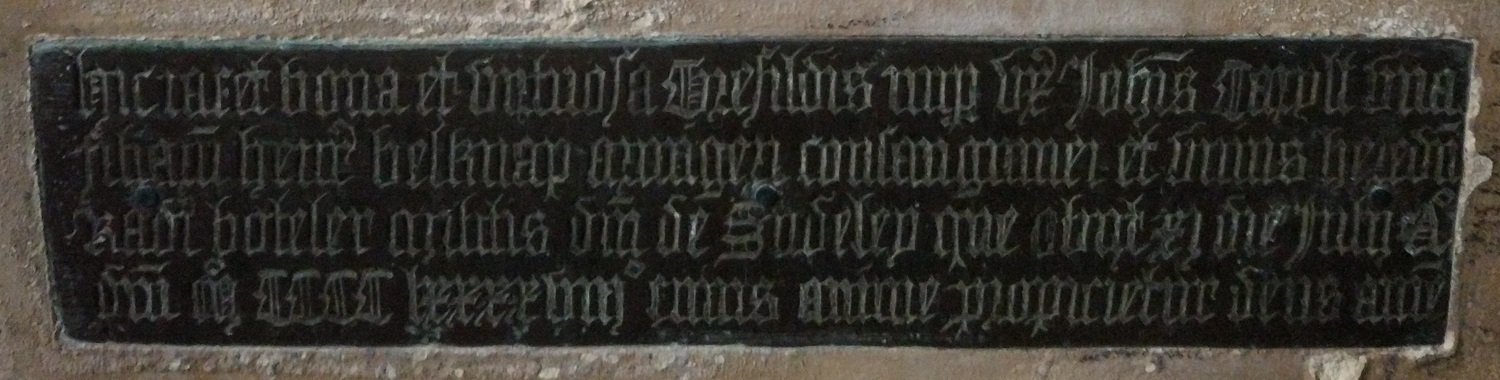 hic iacet bona et virtuosa Gresildis nup uxʳ Johīs Caryll una
filiarū henrʳ belknap armigeri consanguinei et unius heredū
Radi boteler militis dñi de Sudeley que obiit xj die Julij Aº
dñi Mº CCCC lxxxxviijº cuius anime propicietur deus amē